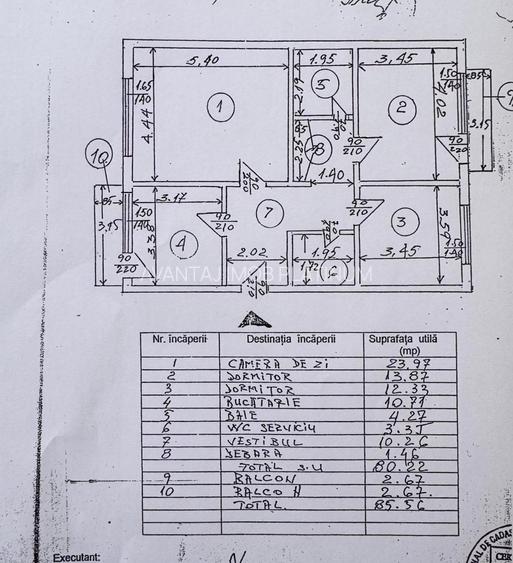 5,40
1.95
3,45
1.65
140
4.44
1
2.19
5
70
2
4,02
1.50
140
85
3.15
9
90
220
10
85
3.15
1.50
140
3.17
90
200
2.25
65
8
1.40
90
210
7
90
210
4
3.38
90
210
90
220
2.02
1.95
1.72
6
70
90
210
3
3.45
3.59
1.50
140
AVANTAJ IMOB PLATINUM
Nr. încăperii Destinația încăperii Suprafața utilă
(mp)
1 CAMERA DE ZI 23.97
2 DORMITOR 13.87
3 DORMITOR 12.33
4 BUCĂTARIE 10.71
5 BAIE 4.27
6 WC SERVICIU 3.35
7 VESTIBUL 10.26
8 DEBARA 1.46
TOTAL S.U 80.22
9 BALCON 2.67
10 BALCON 2.67.
TOTAL. 85.56
Executant: